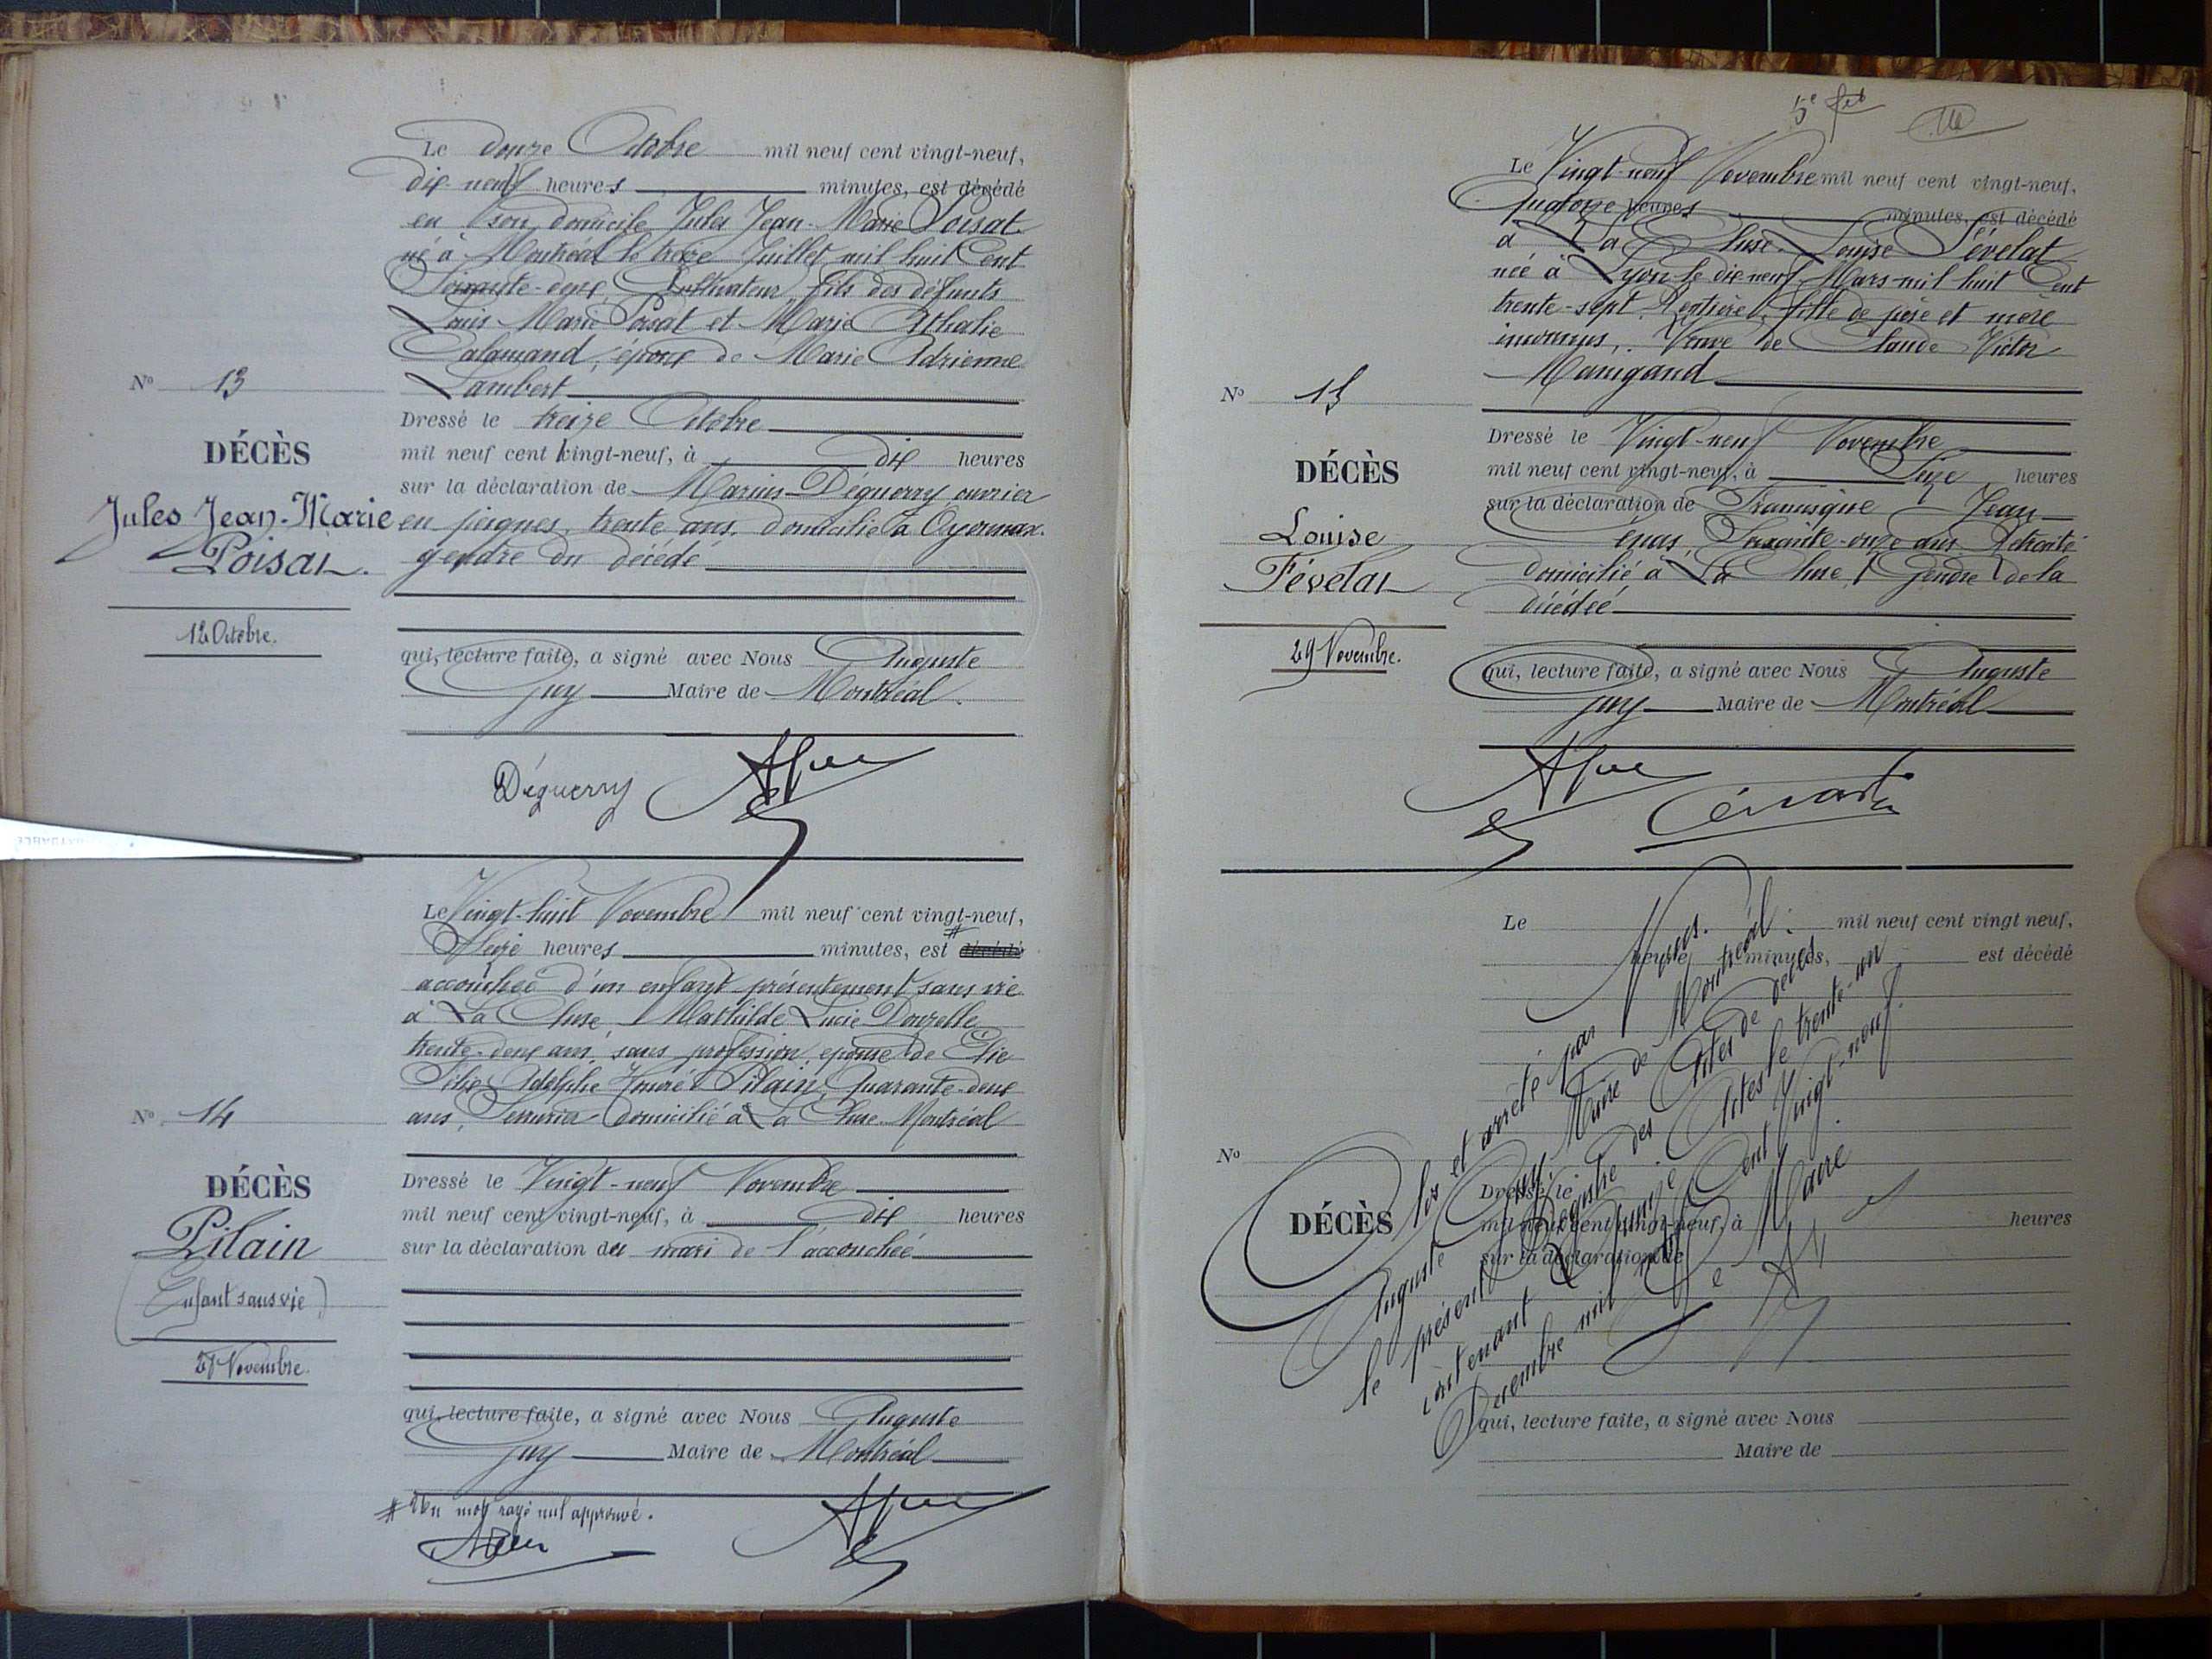 Le douze Octobre mil neuf cent vingt-neuf,
dix-neuf heures minutes, est décédé
en son domicile Jules Jean-Marie Poisat
né à Montréal le treize Juillet mil huit Cent
Soixante-deux, Cultivateur, fils des défunts
Louis Marie Poisat et Marie Athalie
Salamand, époux de Marie Adrienne
Lambert
Nº 13
DÉCÈS
Jules Jean-Marie
Poisat.
12 Octobre.
Dressé le treize Octobre
mil neuf cent vingt-neuf, à dix heures
sur la déclaration de Marius Déguerry ouvrier
en peignes, trente ans, domicilié à Oyonnax.
gendre du décédé
qui, lecture faite, a signé avec Nous Auguste
Guy Maire de Montréal.
Déguerry
Le Vingt-huit Novembre mil neuf cent vingt-neuf,
Seize heures minutes, est # décédé
accouchée d'un enfant présentement sans vie
à La Cluse Mathilde Lucie Douzelle
trente-deux ans, sans profession, épouse de Élie
Adolphe Honoré Pilain, quarante-deux
ans, Serrurier domicilié à La Cluse. Montréal
Nº 14
DÉCÈS
Pilain
(Enfant sans vie)
28 Novembre.
Dressé le Vingt-neuf Novembre
mil neuf cent vingt-neuf, à dix heures
sur la déclaration du mari de l'accouchée
qui, lecture faite, a signé avec Nous Auguste
Guy Maire de Montréal
# Un mot rayé nul approuvé.
5e
Le Vingt-neuf Novembre mil neuf cent vingt-neuf,
Quatorze heures minutes, est décédé
à La Cluse. Louise Févelat
née à Lyon le dix neuf Mars mil huit Cent
trente-sept. Rentière, fille de père et mère
inconnus, Veuve de Claude Victor
Manigand
Nº 15
DÉCÈS
Louise
Févelat
29 Novembre.
Dressé le Vingt-neuf Novembre
mil neuf cent vingt-neuf, à Seize heures
sur la déclaration de Francisque Jean
Soixante-onze ans Retraité
domicilié à La Cluse, Gendre de la
décédée
qui, lecture faite, a signé avec Nous Auguste
Guy Maire de Montréal
Le mil neuf cent vingt neuf,
heures minutes, est décédé
Nº
DÉCÈS
Dressé le
mil neuf cent vingt-neuf, à heures
sur la déclaration de
Clos et arrêté par Nous.
Auguste Guy, Maire de Montréal :
le présent Registre des Actes de décès
contenant Quinze Actes le trente-un
Décembre mil neuf Cent Vingt-neuf.
Le Maire.
qui, lecture faite, a signé avec Nous
Maire de